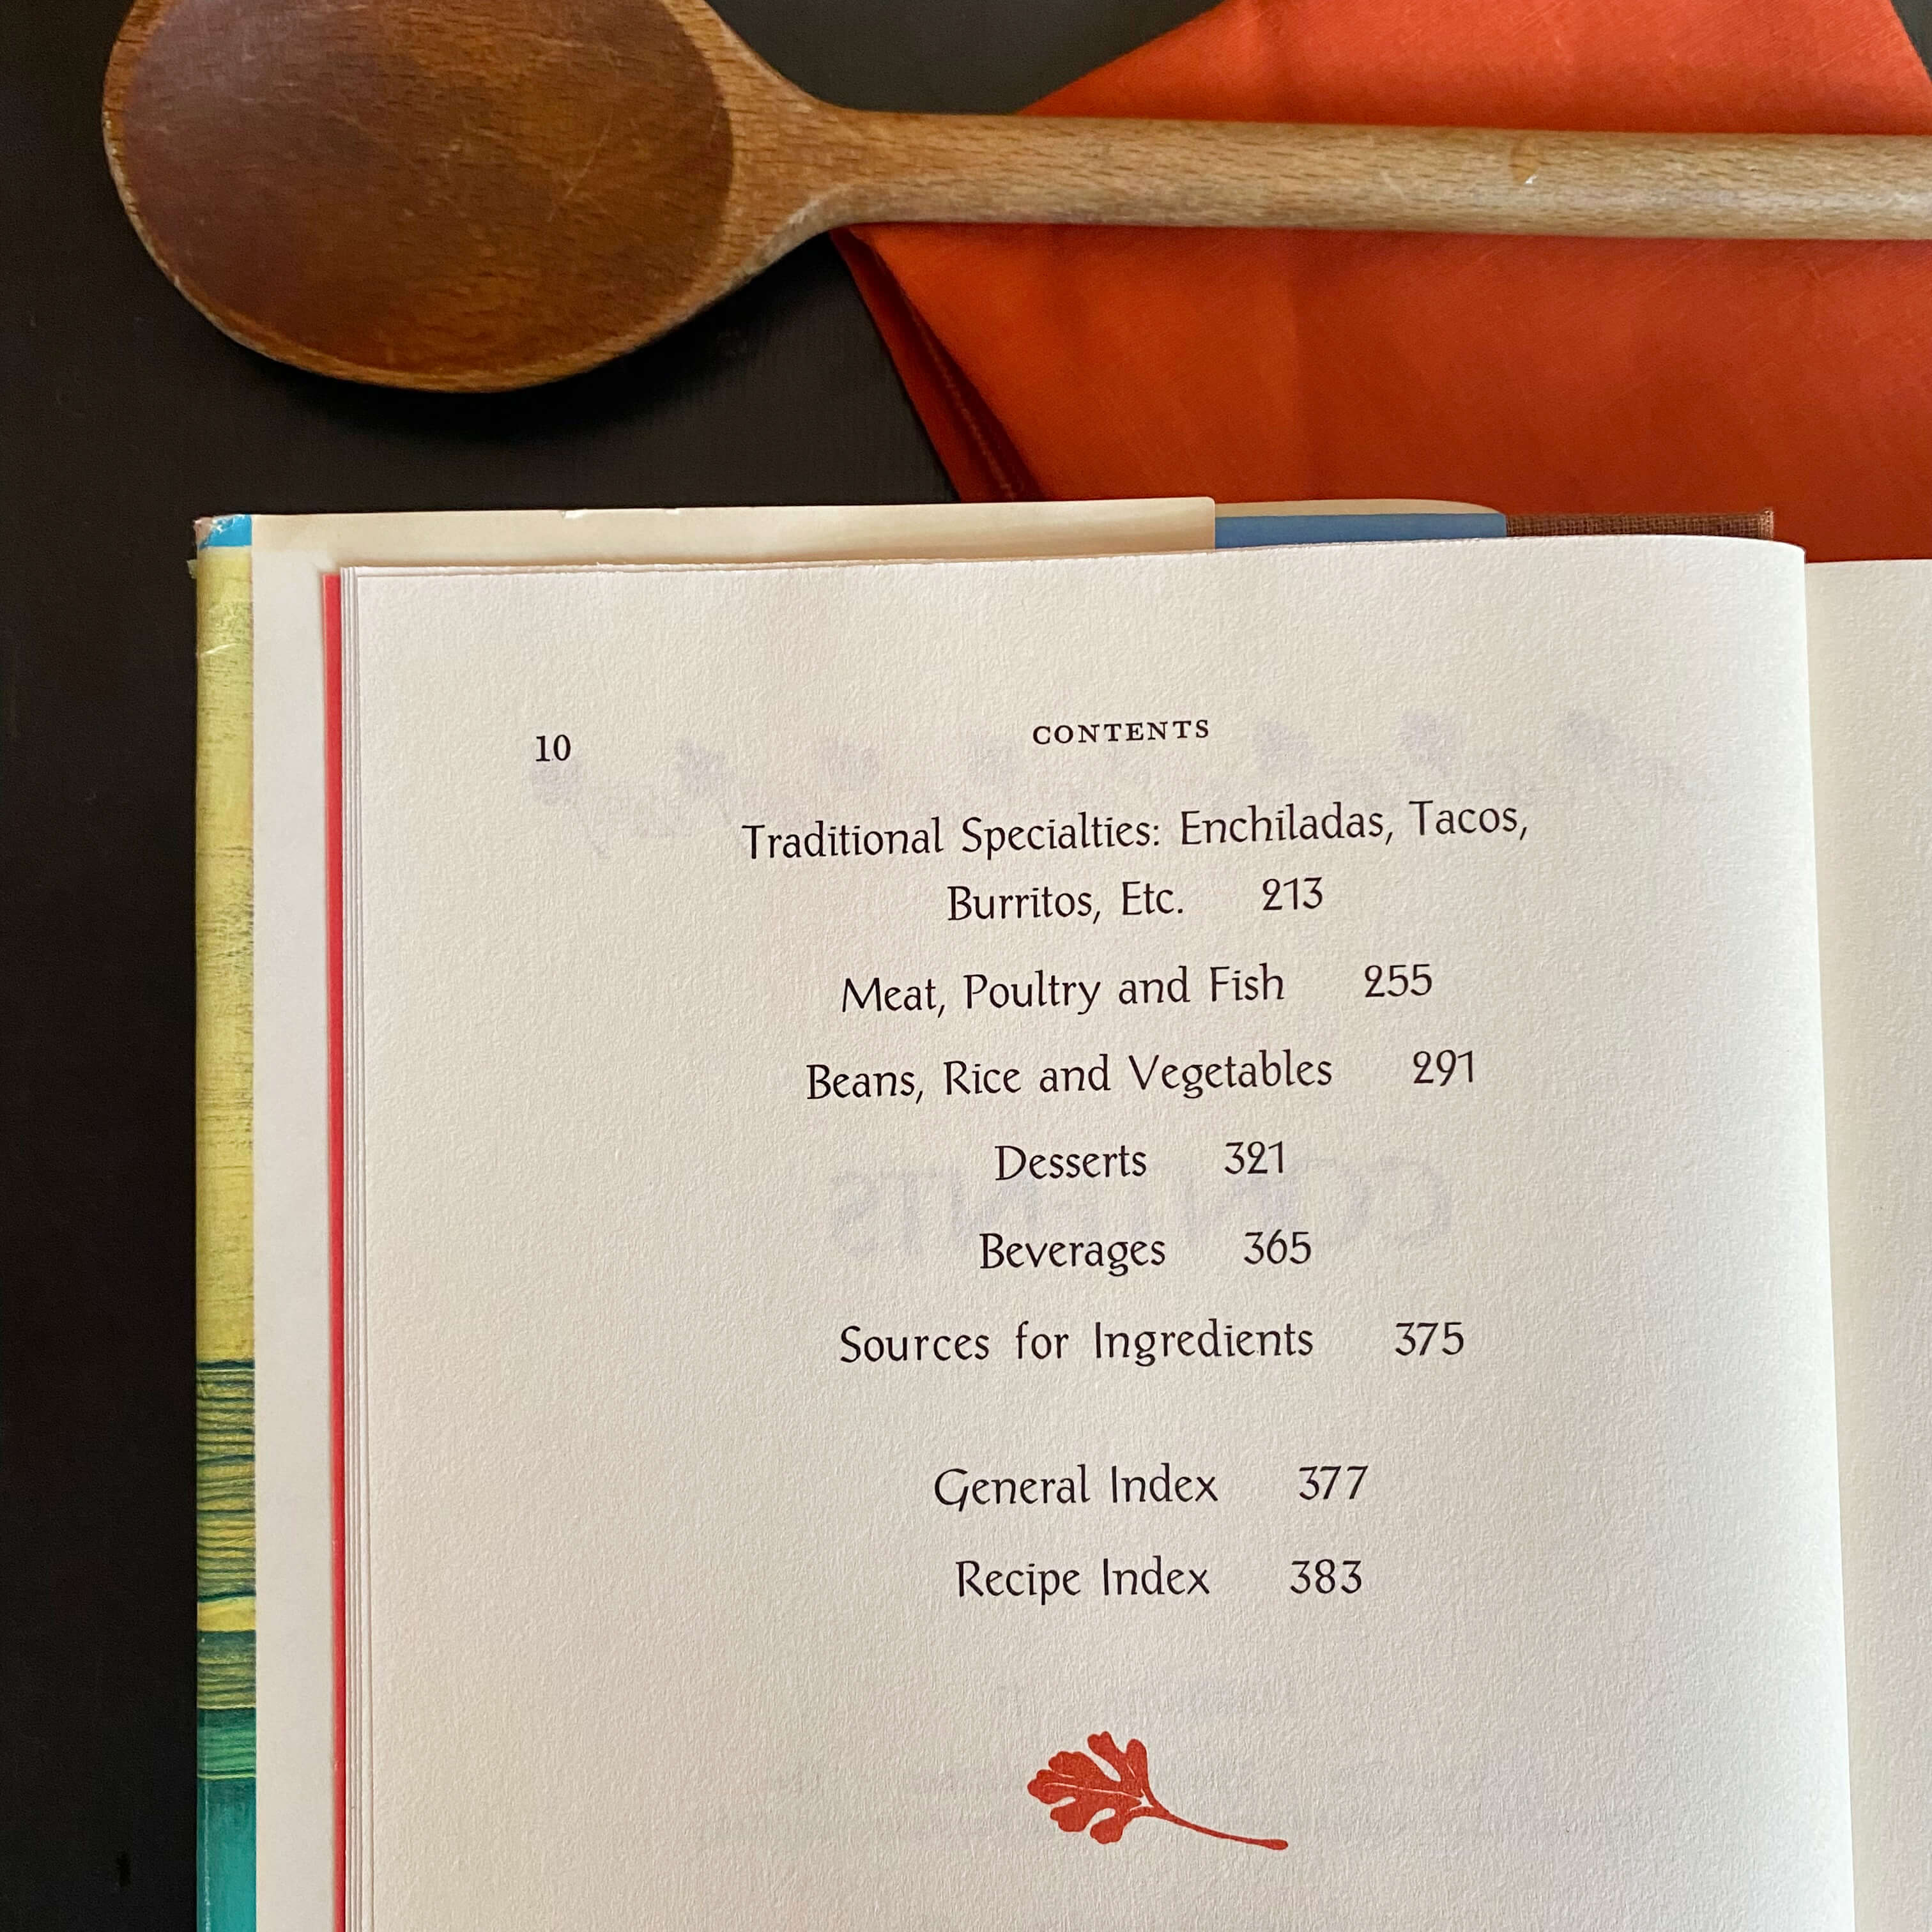 10 CONTENTS
Traditional Specialties: Enchiladas, Tacos,
Burritos, Etc. 213
Meat, Poultry and Fish 255
Beans, Rice and Vegetables 291
Desserts 321
Beverages 365
Sources for Ingredients 375
General Index 377
Recipe Index 383